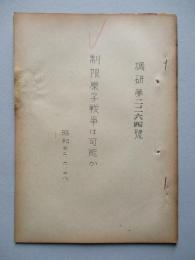 調研第二二六四號
制限原子戦争は可能か
昭和三二、六、